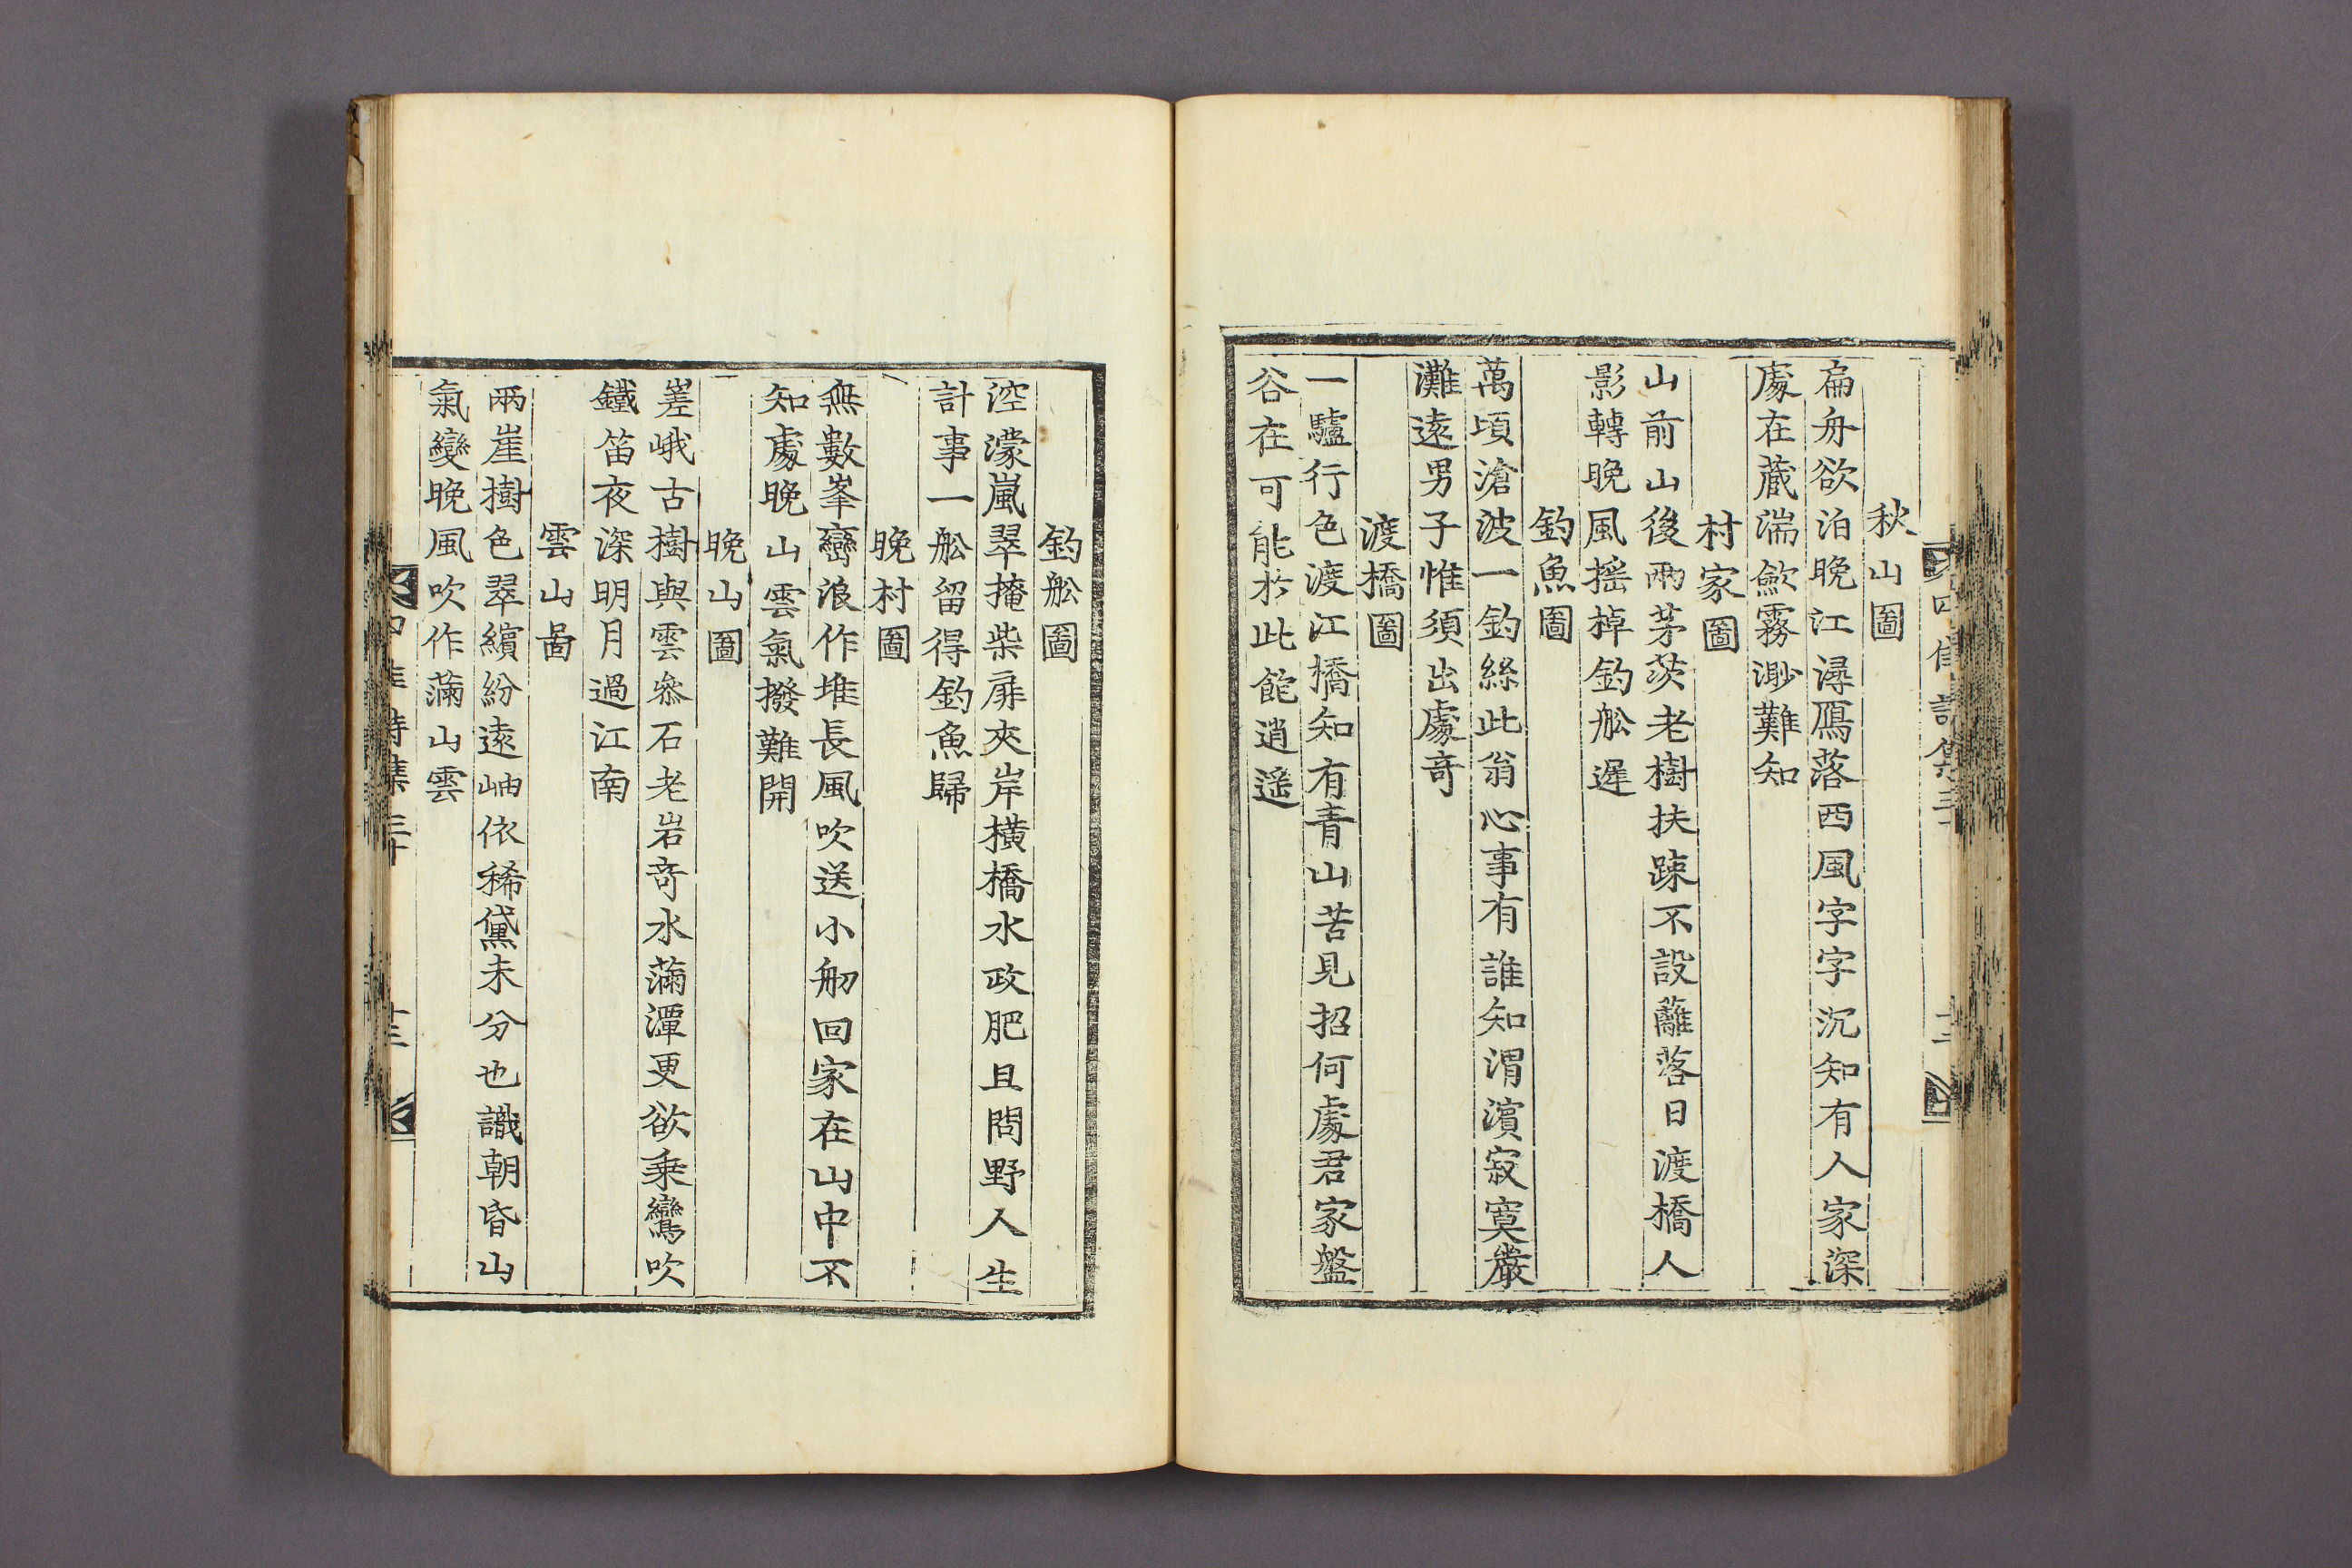 秋山圖
扁舟欲泊晩江潯鴈落西風字字沉知有人家深
處在蔵湍歛霧渺難知
村家圖
山前山後兩茅茨老樹扶踈不設蘺落日渡橋人
影轉晩風搖棹釣舩遲
釣魚圖
萬頃滄波一釣絲此翁心事有誰知渭濵寂寞嚴
灘遠男子惟須出處竒
渡橋圖
一驢行色渡江橋知有青山苦見招何處君家盤
谷在可能於此飽逍遥
釣舩圖
涳濛嵐翠掩柴扉夾岸橫橋水政肥且問野人生
計事一舩留得釣魚歸
晩村圖
無數峯巒浪作堆長風吹送小舠回家在山中不
知處晩山雲氣撥難開
晩山圖
嵳峨古樹與雲叅石老岩竒水滿潭更欲乗鸞吹
鐵笛夜深明月過江南
雲山啚
兩崖樹色翠繽紛遠岫依稀黛未分也識朝昏山
氣變晩風吹作滿山雲